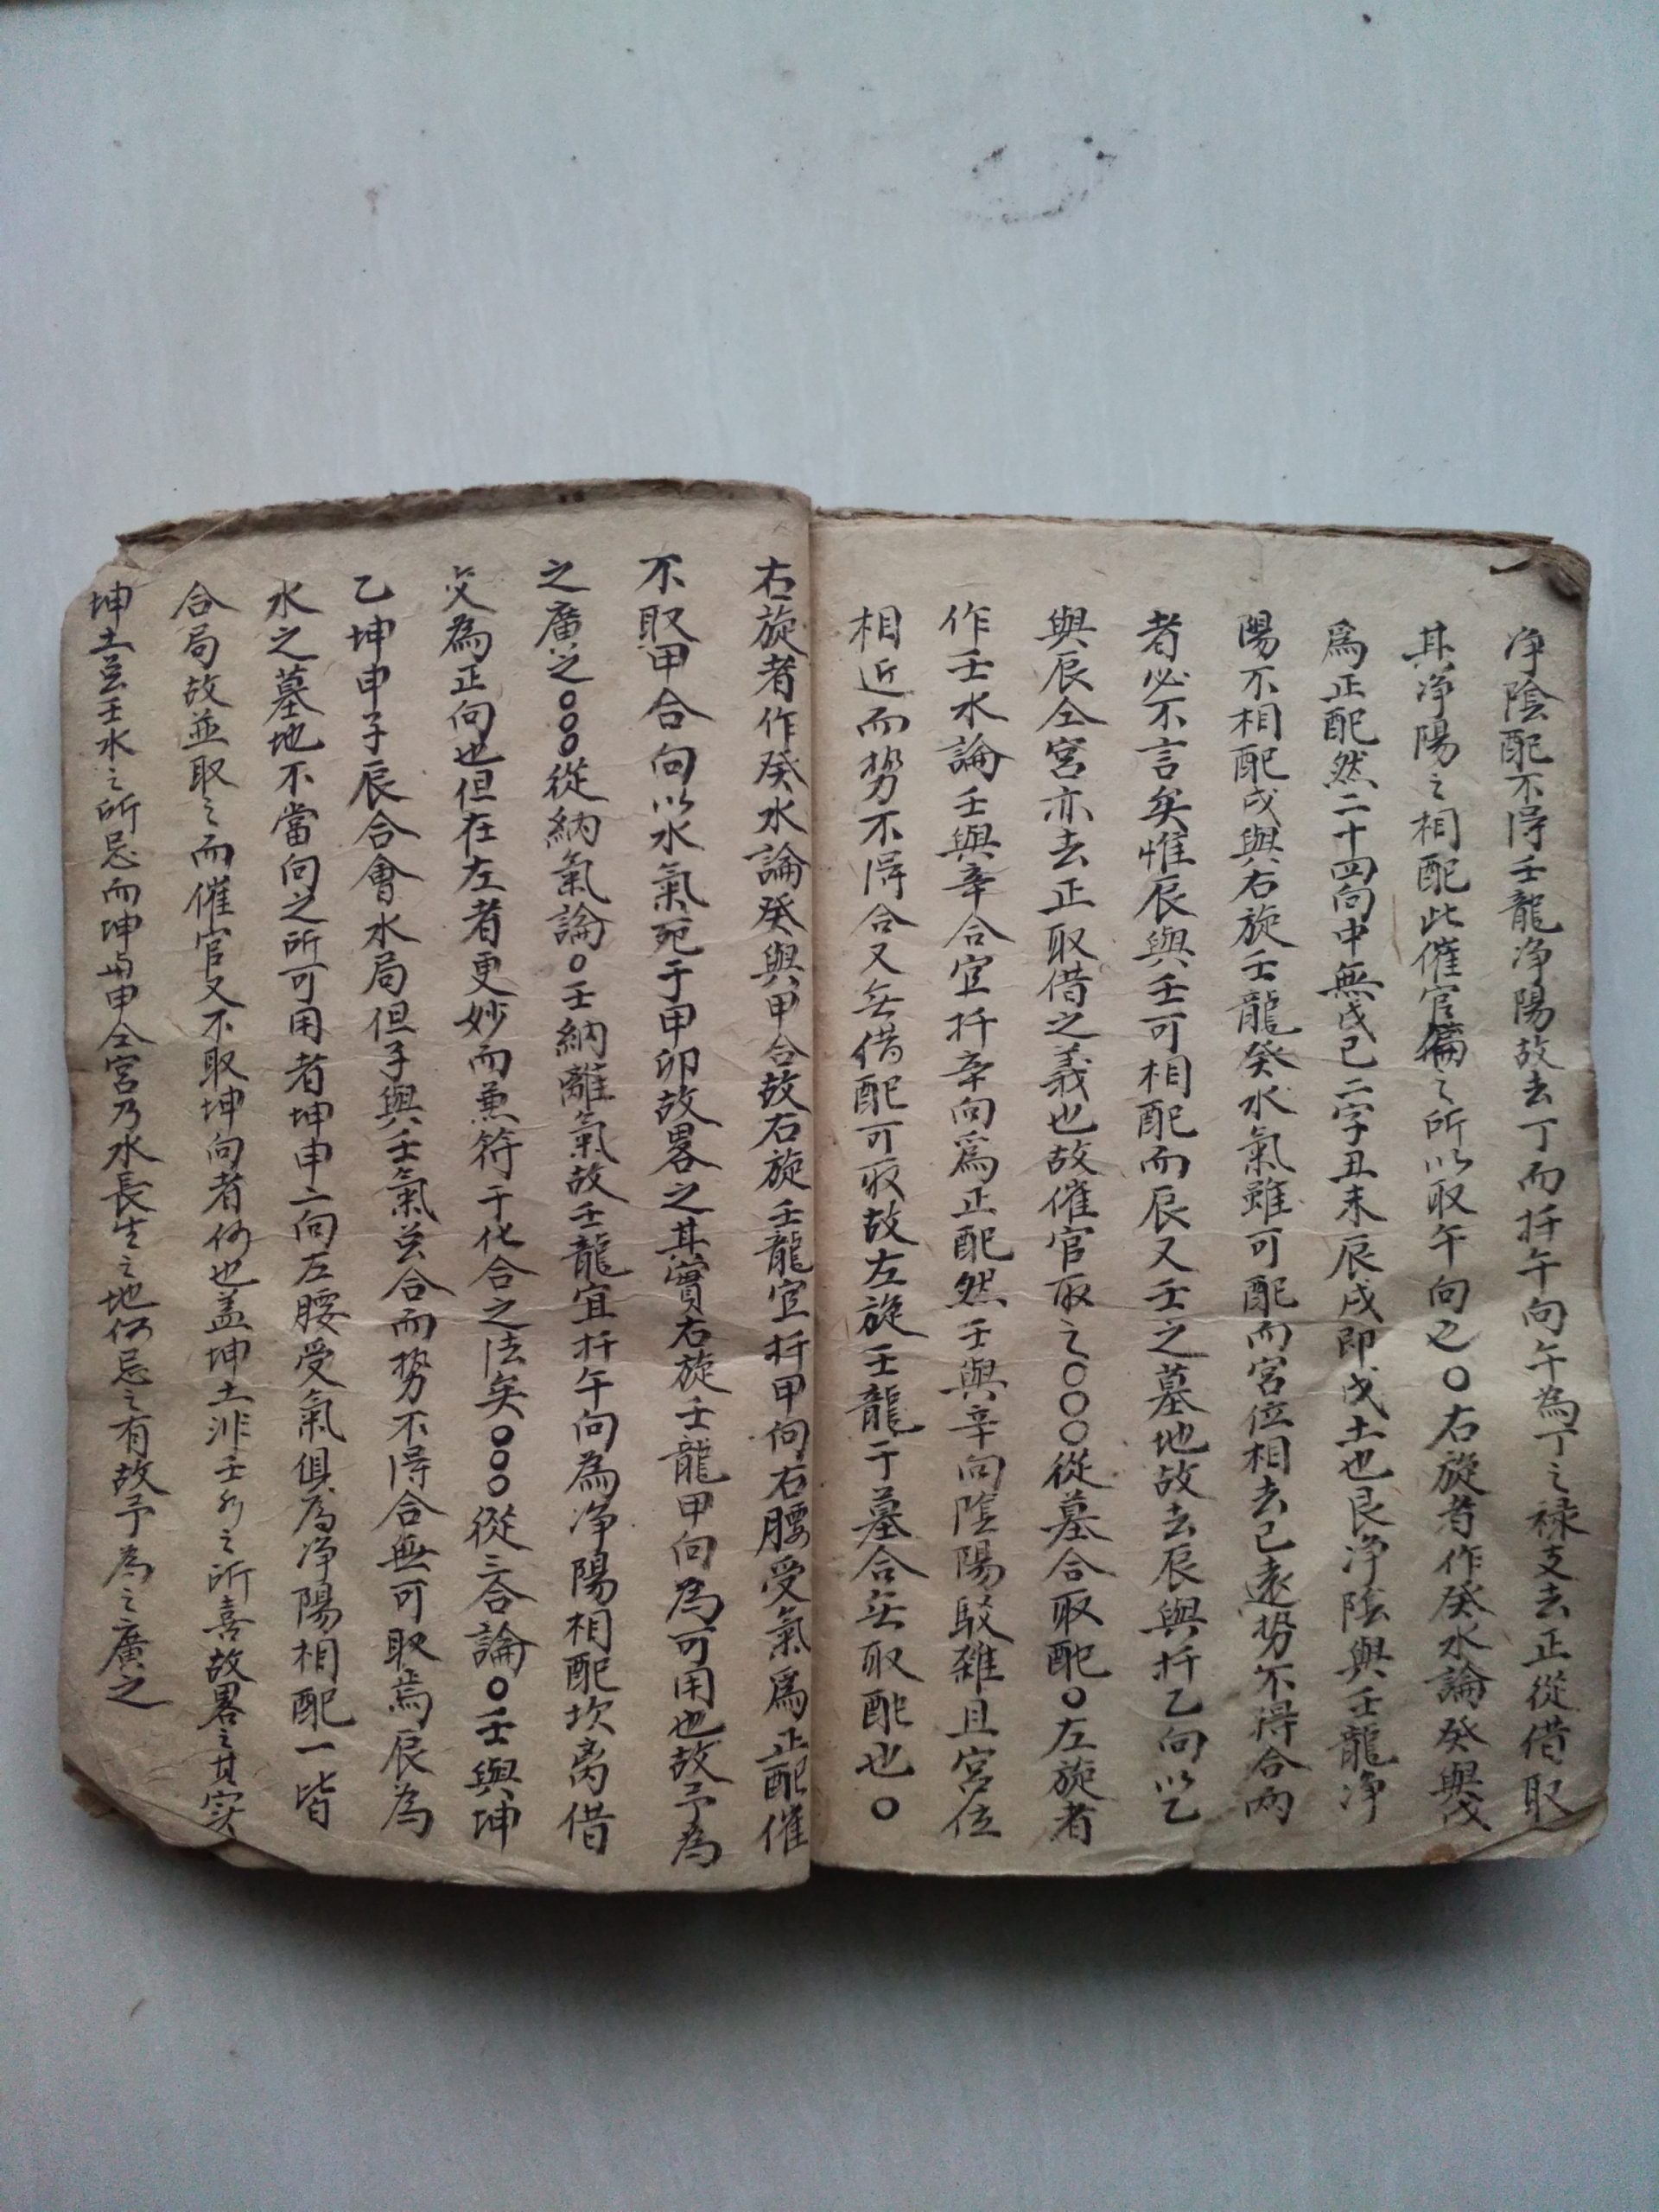 净陰配不得壬龍净陽故去丁而扦午向午為丁之禄支去正從借取
其净陽之相配此催官篇之所以取午向也〇右旋者作癸水論癸與戊
爲正配然二十四向中無戊己二字丑未辰戌即戊土也艮净陰與壬龍净
陽不相配戌與右旋壬龍癸水氣雖可配而宮位相去已遠勢不得合兩
者必不言矣惟辰與壬可相配而辰又壬之墓地故去辰與扦乙向以乙
與辰仝宮亦去正取借之義也故催官取之〇〇〇從墓合取配〇左旋者
作壬水論壬與辛合宜扦辛向爲正配然壬與辛向陰陽駁雜且宮位
相近而勢不得合又無借配可取故左旋壬龍于墓合無取配也〇
右旋者作癸水論癸與甲合故右旋壬龍宜扦甲向右腰受氣爲正配催
不取甲合向以水氣死于甲卯故畧之其實右旋壬龍甲向為可用也故予為
之廣之〇〇〇從納氣論〇壬納離氣故壬龍宜扦午向為净陽相配坎离借
交為正向也但在左者更妙而兼符干化合之法矣〇〇〇從三合論〇壬與坤
乙坤申子辰合會水局但子與壬氣並合而勢不得合無可取焉辰為
水之墓地不當向之所可用者坤申二向左腰受氣俱為净陽相配一皆
合局故並取之而催官又不取坤向者何也盖坤土非壬水之所喜故畧之其实
坤土並壬水之所忌而坤與申仝宮乃水長生之地何忌之有故予為之廣之